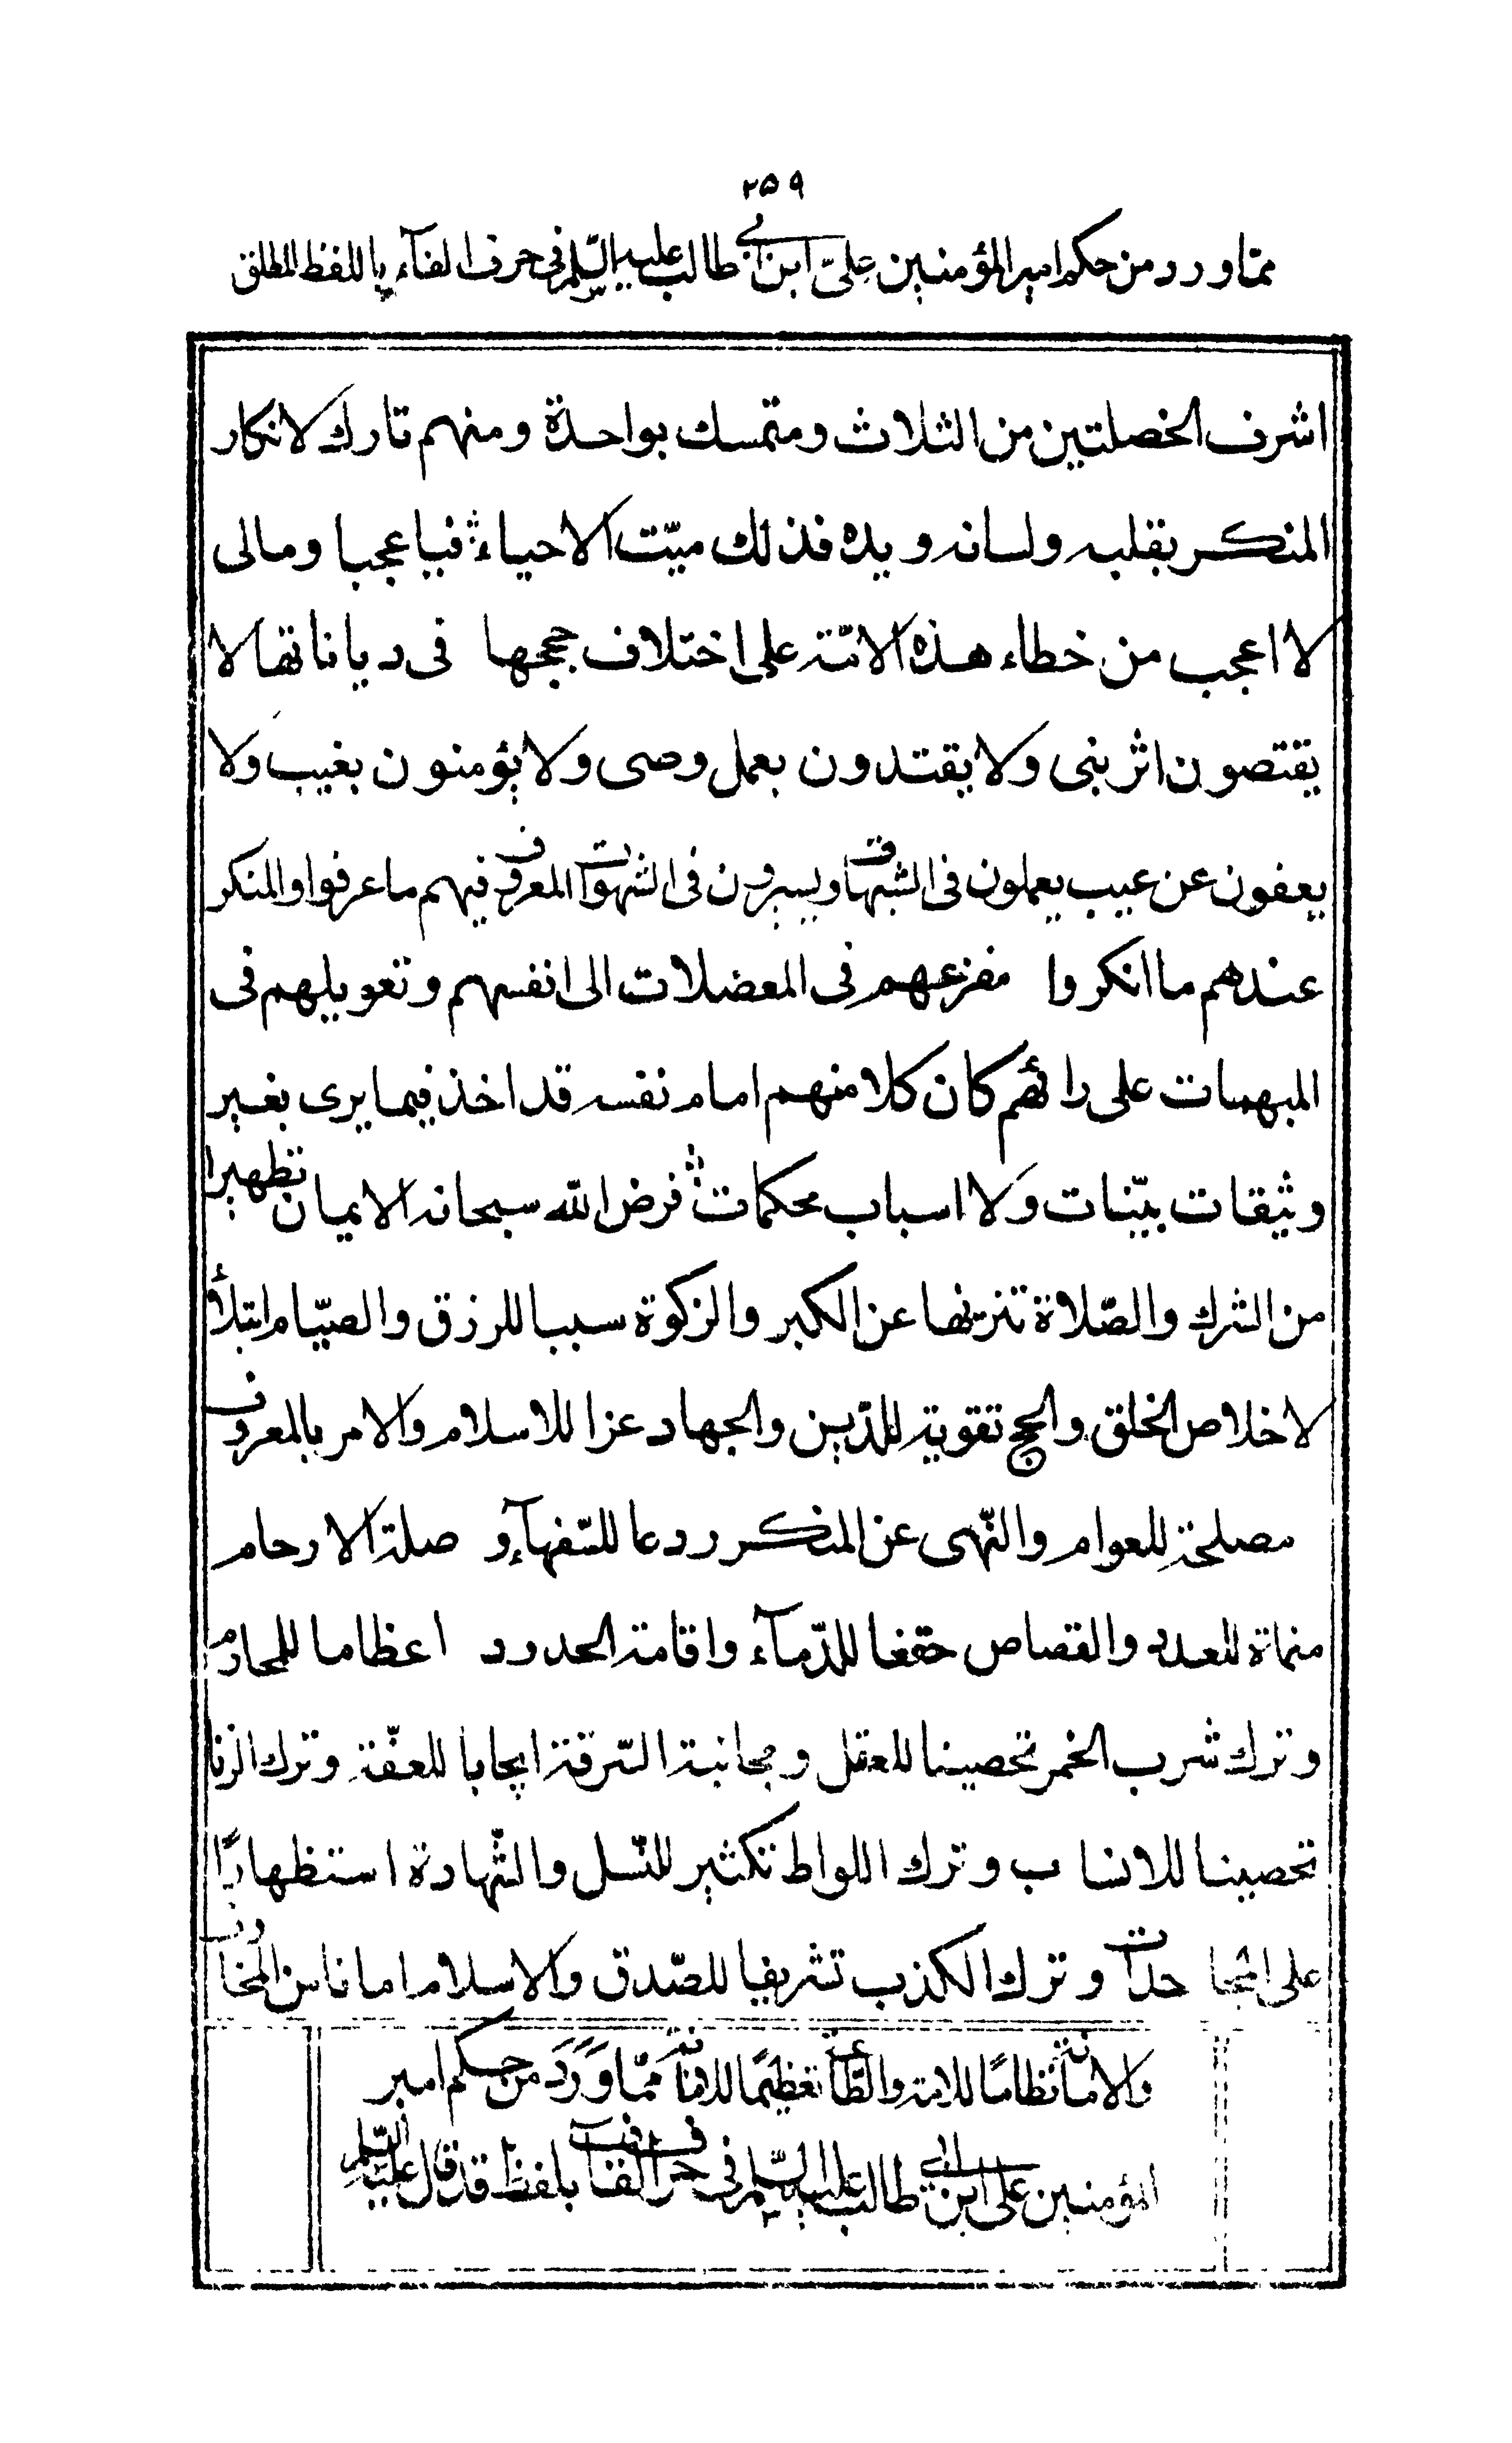 ۲۵۹
ممّا ورد من حكم امير المؤمنين علیّ ابن ابی طالب عليه السّلم فی حرف الفآء باللفظ المطلق
اشرف الخصلتين من الثلاث ومتمسك بواحدة ومنهم تارك لانكار
المنكر بقلبه ولسانه ويده فذلك ميّت الاحياء فيا عجبا ومالی
لا اعجب من خطاء هذه الامّة علی اختلاف حججها فی دياناتها لا
يقتصون اثر نبی ولا يقتدون بعمل وصی ولا يؤمنون بغيب ولا
يعفون عن عيب يعملون فی الشبهات ويسيرون فی الشهوات المعروف فيهم ما عرفوا والمنكر
عندهم ما انكروا مفزعهم فی المعضلات الی انفسهم وتعويلهم فی
المبهمات علی رائهم كان كلا منهم امام نفسه قد اخذ فيما يری بغير
وثيقات بيّنات ولا اسباب محكمات فرض الله سبحانه الايمان تطهيرا
من الشرك والصّلاة تنزيها عن الكبر والزكوة سببا للرزق والصيّام ابتلأ
لاخلاص الخلق والحج تقوية للدّين والجهاد عزا للاسلام والامر بالمعروف
مصلحة للعوام والنّهی عن المنكر ردعا للسّفهآء و صلة الارحام
منماة للعدد والقصاص حقنا للدّمآء واقامة الحدود اعظاما للمحارم
وترك شرب الخمر تحصينا للعقل ومجانبة السّرقة ايجابا للعفّة وترك الزنا
تحصينا للانساب وترك اللواط تكثير للنّسل والشّهادة استظهارًا
علی المجاحدات وترك الكذب تشريفا للصّدق والاسلام امانا من المخاوف
والامانة نظامًا للامة والطّاعة تعظيمًا للامامة ممّا وَرَدَ من حكم امير
المؤمنين علی ابن ابی طالب عليه السّلم فی حرف الفآء بلفظ قد قال عليه السّلم